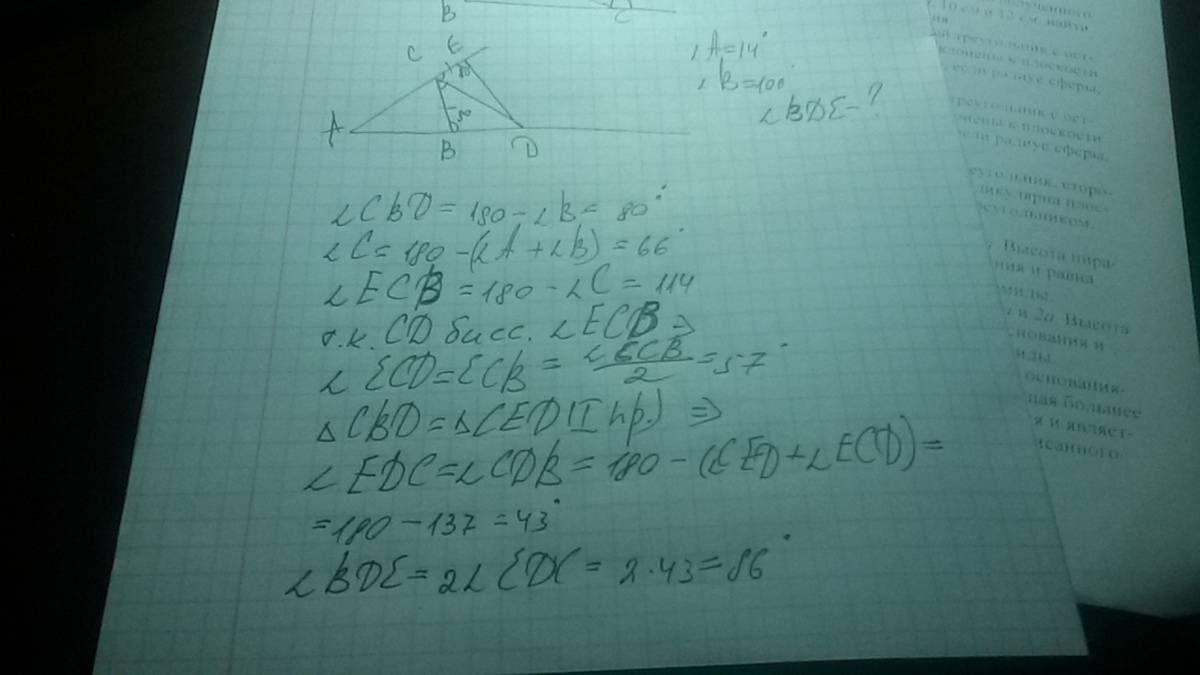 В С
C E
A B D
∠A=14°
∠B=100°
∠BDE-?
∠CBD = 180 - ∠B = 80°
∠C = 180 - (∠A + ∠B) = 66°
∠ECB = 180 - ∠C = 114
т.к. CD бисс. ∠ECB ⇒
∠ECD = ECB = ∠ECB/2 = 57°
△CBD = △CED (I пр.) ⇒
∠EDC = ∠CDB = 180 - (∠CED + ∠ECD) =
= 180 - 137 = 43°
∠BDE = 2∠EDC = 2·43 = 86°
10 см и 12 см, найти
треугольник с ост-
клонены к плоскости
если радиус сферы,
треугольник с ост-
онены к плоскости
если радиус сферы,
угольник, сторо-
дикулярна плос-
реугольником.
Высота пира-
ния и равна
миды.
и 2а. Высота
нования и
иды.
основания-
щая большее
я и являет-
исанного